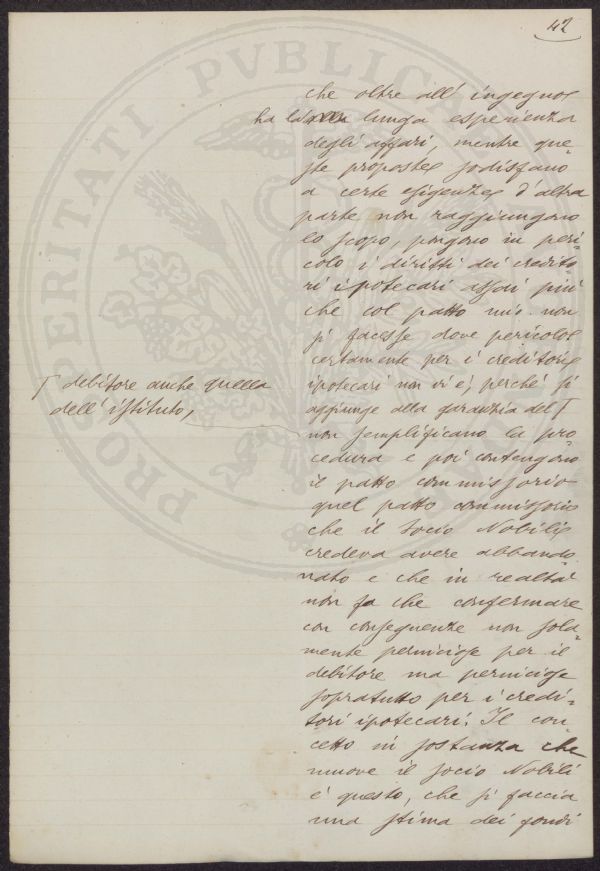 42
che oltre all' ingegno
ha la lunga esperienza
degli affari, mentre que=
ste proposte sodisfano
a certe esigenze d'altra
parte non raggiungono
lo scopo, pongono in peri
colo i diritti dei credito
ri ipotecari assai più
che col patto mio non
si facesse dove pericolo
certamente per i creditori
ipotecari non vi è, perché si
aggiunge alla garanzia del Γ
Γ debitore anche quella
dell' istituto,
non semplificano la pro
cedura e poi contengono
il patto commissorio
quel patto commissorio
che il socio Nobili
credeva avere abbando
nato e che in realtà
non fa che confermare
con conseguenze non sola=
mente perniciose per il
debitore ma perniciose
sopratutto per i credi=
tori ipotecari. Il con
cetto in sostanza che
muove il socio Nobili
è questo, che si faccia
una stima dei fondi
PROSPERITATI PVBLICAE